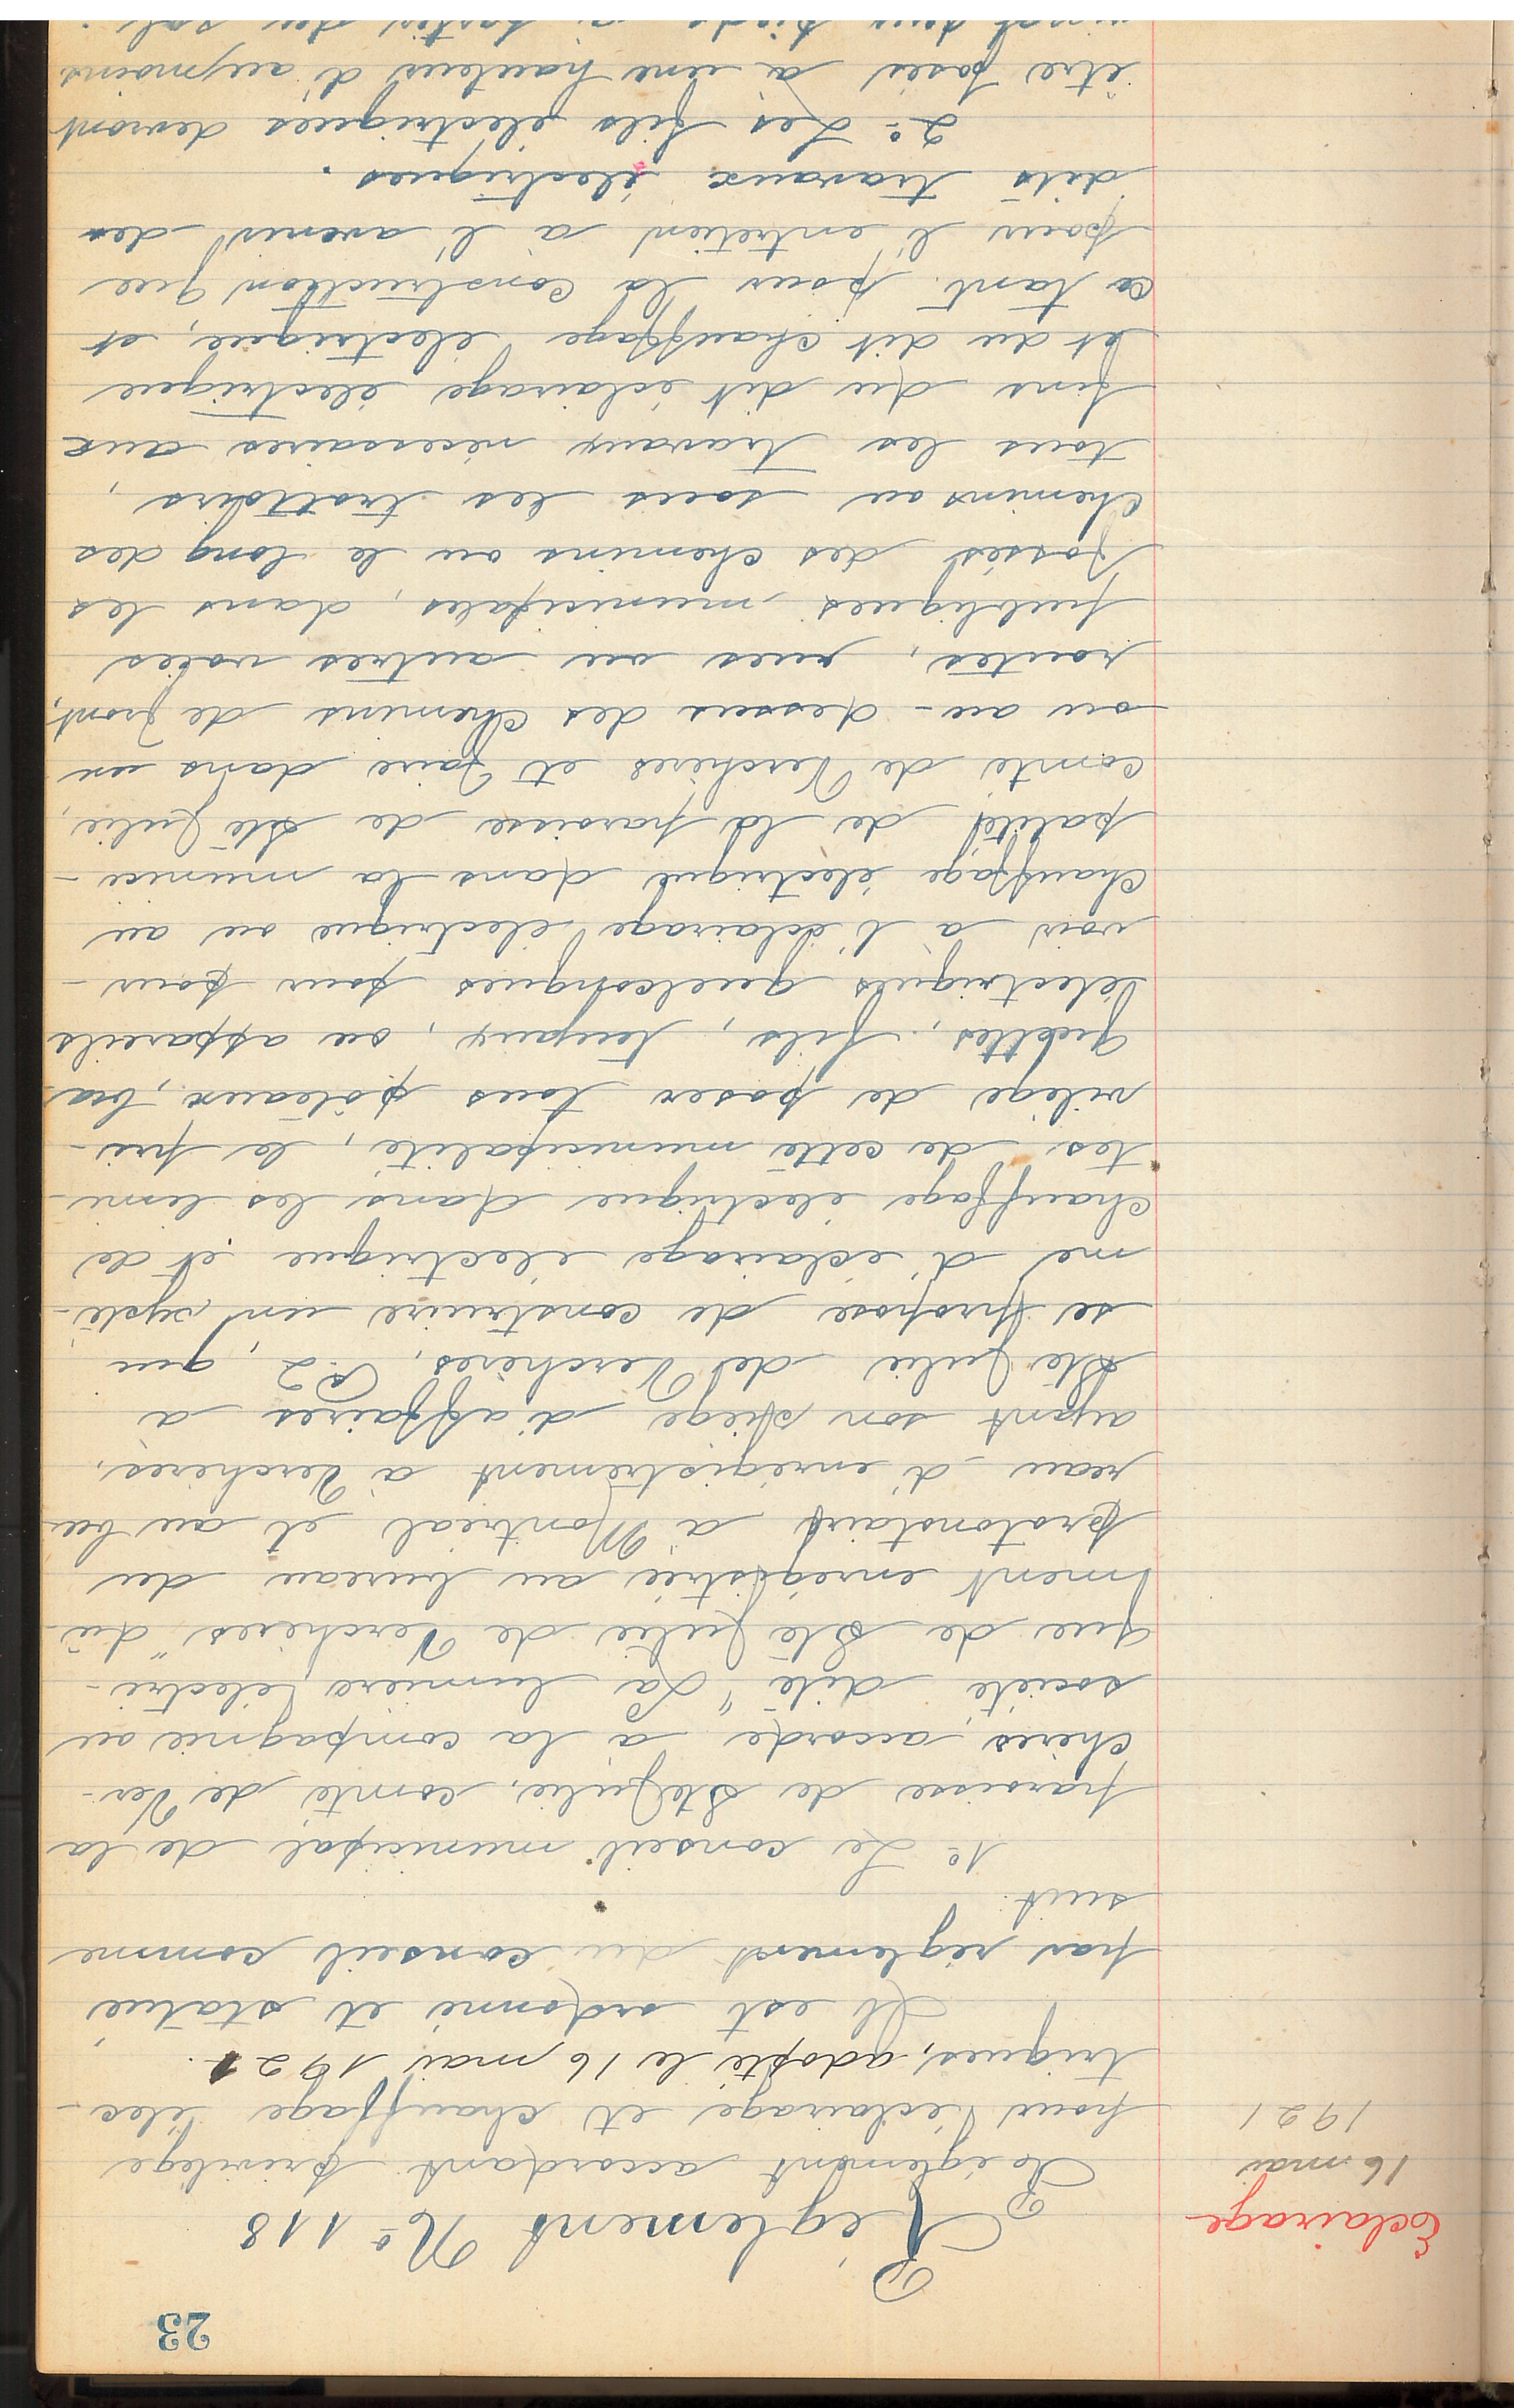 23
Règlement No 118
Eclairage
16 mai
1921
Règlement accordant privilège
pour l'éclairage et chauffage élec-
triques, adopté le 16 mai 1921.
Il est ordonné et statué,
par règlement du conseil comme
suit:
1º Le conseil municipal de la
paroisse de Ste Julie, comté de Ver-
chères, accorde à la compagnie ou
société dite "La lumière électri-
que de Ste Julie de Verchères" dû-
ment enrégistrée au bureau du
protonotaire à Montréal et au bu
reau d'enrégistrement à Verchères,
ayant son siège d'affaires à
Ste Julie de Verchères, P.2, qui
se propose de construire un systè-
me d'éclairage électrique et de
chauffage électrique dans les limi-
tes de cette municipalité, le pri-
vilège de poser tous poteaux, bra
quettes, fils, tuyaux, ou appareils
électriques quelconques pour pour-
voir à l'éclairage électrique ou au
chauffage électrique dans la munici-
palité de la paroisse de Ste Julie,
comté de Verchères et faire dans un
ou au-dessus des chemins de front,
routes, rues ou autres voies
publiques municipales, dans les
fossés des chemins ou le long des
chemins ou sous les trottoirs,
tous les travaux nécessaires aux
fins du dit éclairage électrique
et du dit chauffage électrique, et
ce tant pour la construction que
pour l'entretien à l'avenir des
dits travaux électriques.
2º- Les fils électriques devront
être posés à une hauteur d'au moins
vingt deux pieds à partir du sol: